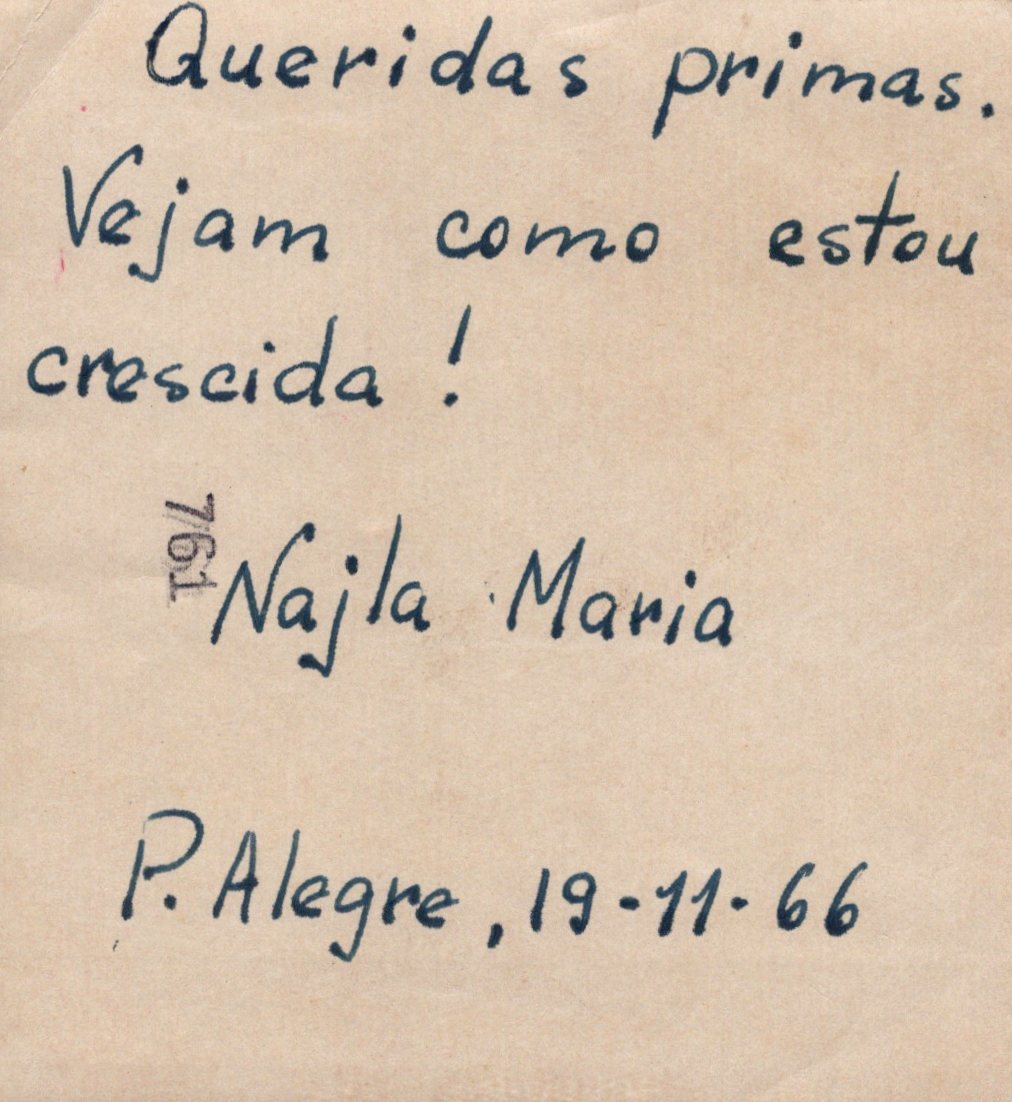 Queridas primas.
Vejam como estou
crescida !
761
Najla Maria
P. Alegre, 19-11-66